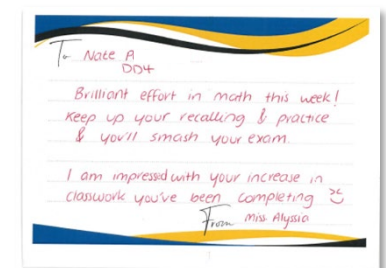 To Nate A
DD4
Brilliant effort in math this week!
Keep up your recalling & practice
& you'll smash your exam.
I am impressed with your increase in
classwork you've been completing
From Miss Alyssia